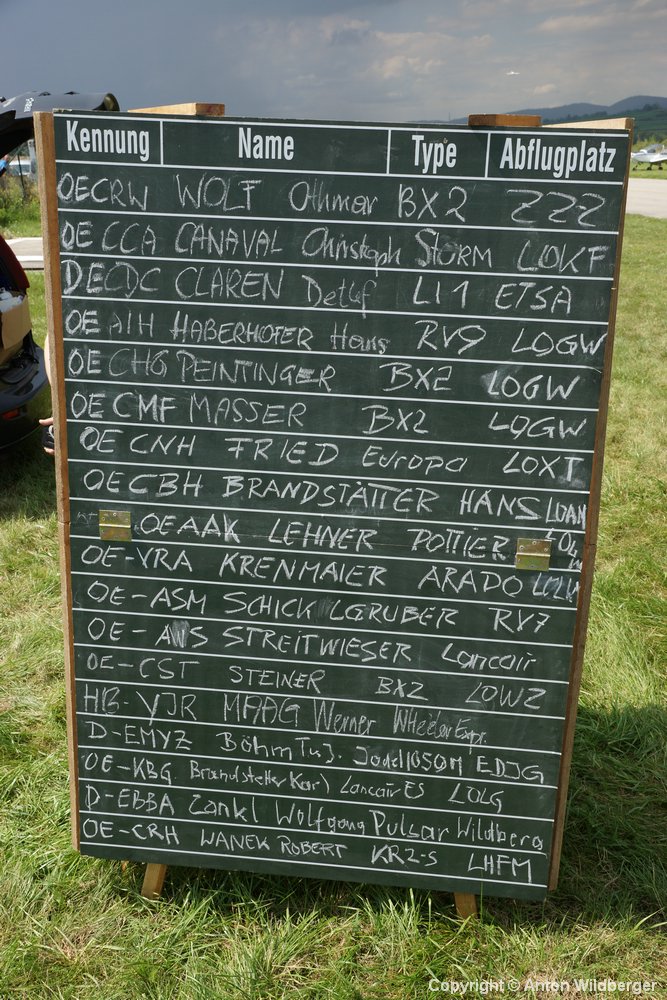 Kennung Name Type Abflugplatz
OECRW WOLF Othmar BX2 ZZZ
OE CCA CANAVAL Christoph STORM LOKF
DECDC CLAREN Detlef LI1 ETSA
OE AIH HABERHOFER Hans RV9 LOGW
OE CHG PEINTINGER BX2 LOGW
OE CMF MASSER BX2 LOGW
OE CNH FRIED Europa LOXT
OECBH BRANDSTÄTTER HANS LOAN
OEAAK LEHNER POTTIER
OE-VRA KRENMAIER ARADO
OE-ASM SCHICKLGRUBER RV7
OE- STREITWIESER Lancair
OE-CST STEINER BX2 LOWZ
HB-YJR MAAG Werner Wheeler Expr.
D-EMYZ Böhm Jodel 1050M EDJG
OE-KBG Brandstetter Karl Lancair ES LOLG
D-EBBA Zankl Wolfgang Pulsar Wildberg
OE-CRH WANEK ROBERT KR2-S LHFM
Copyright © Anton Wildberger